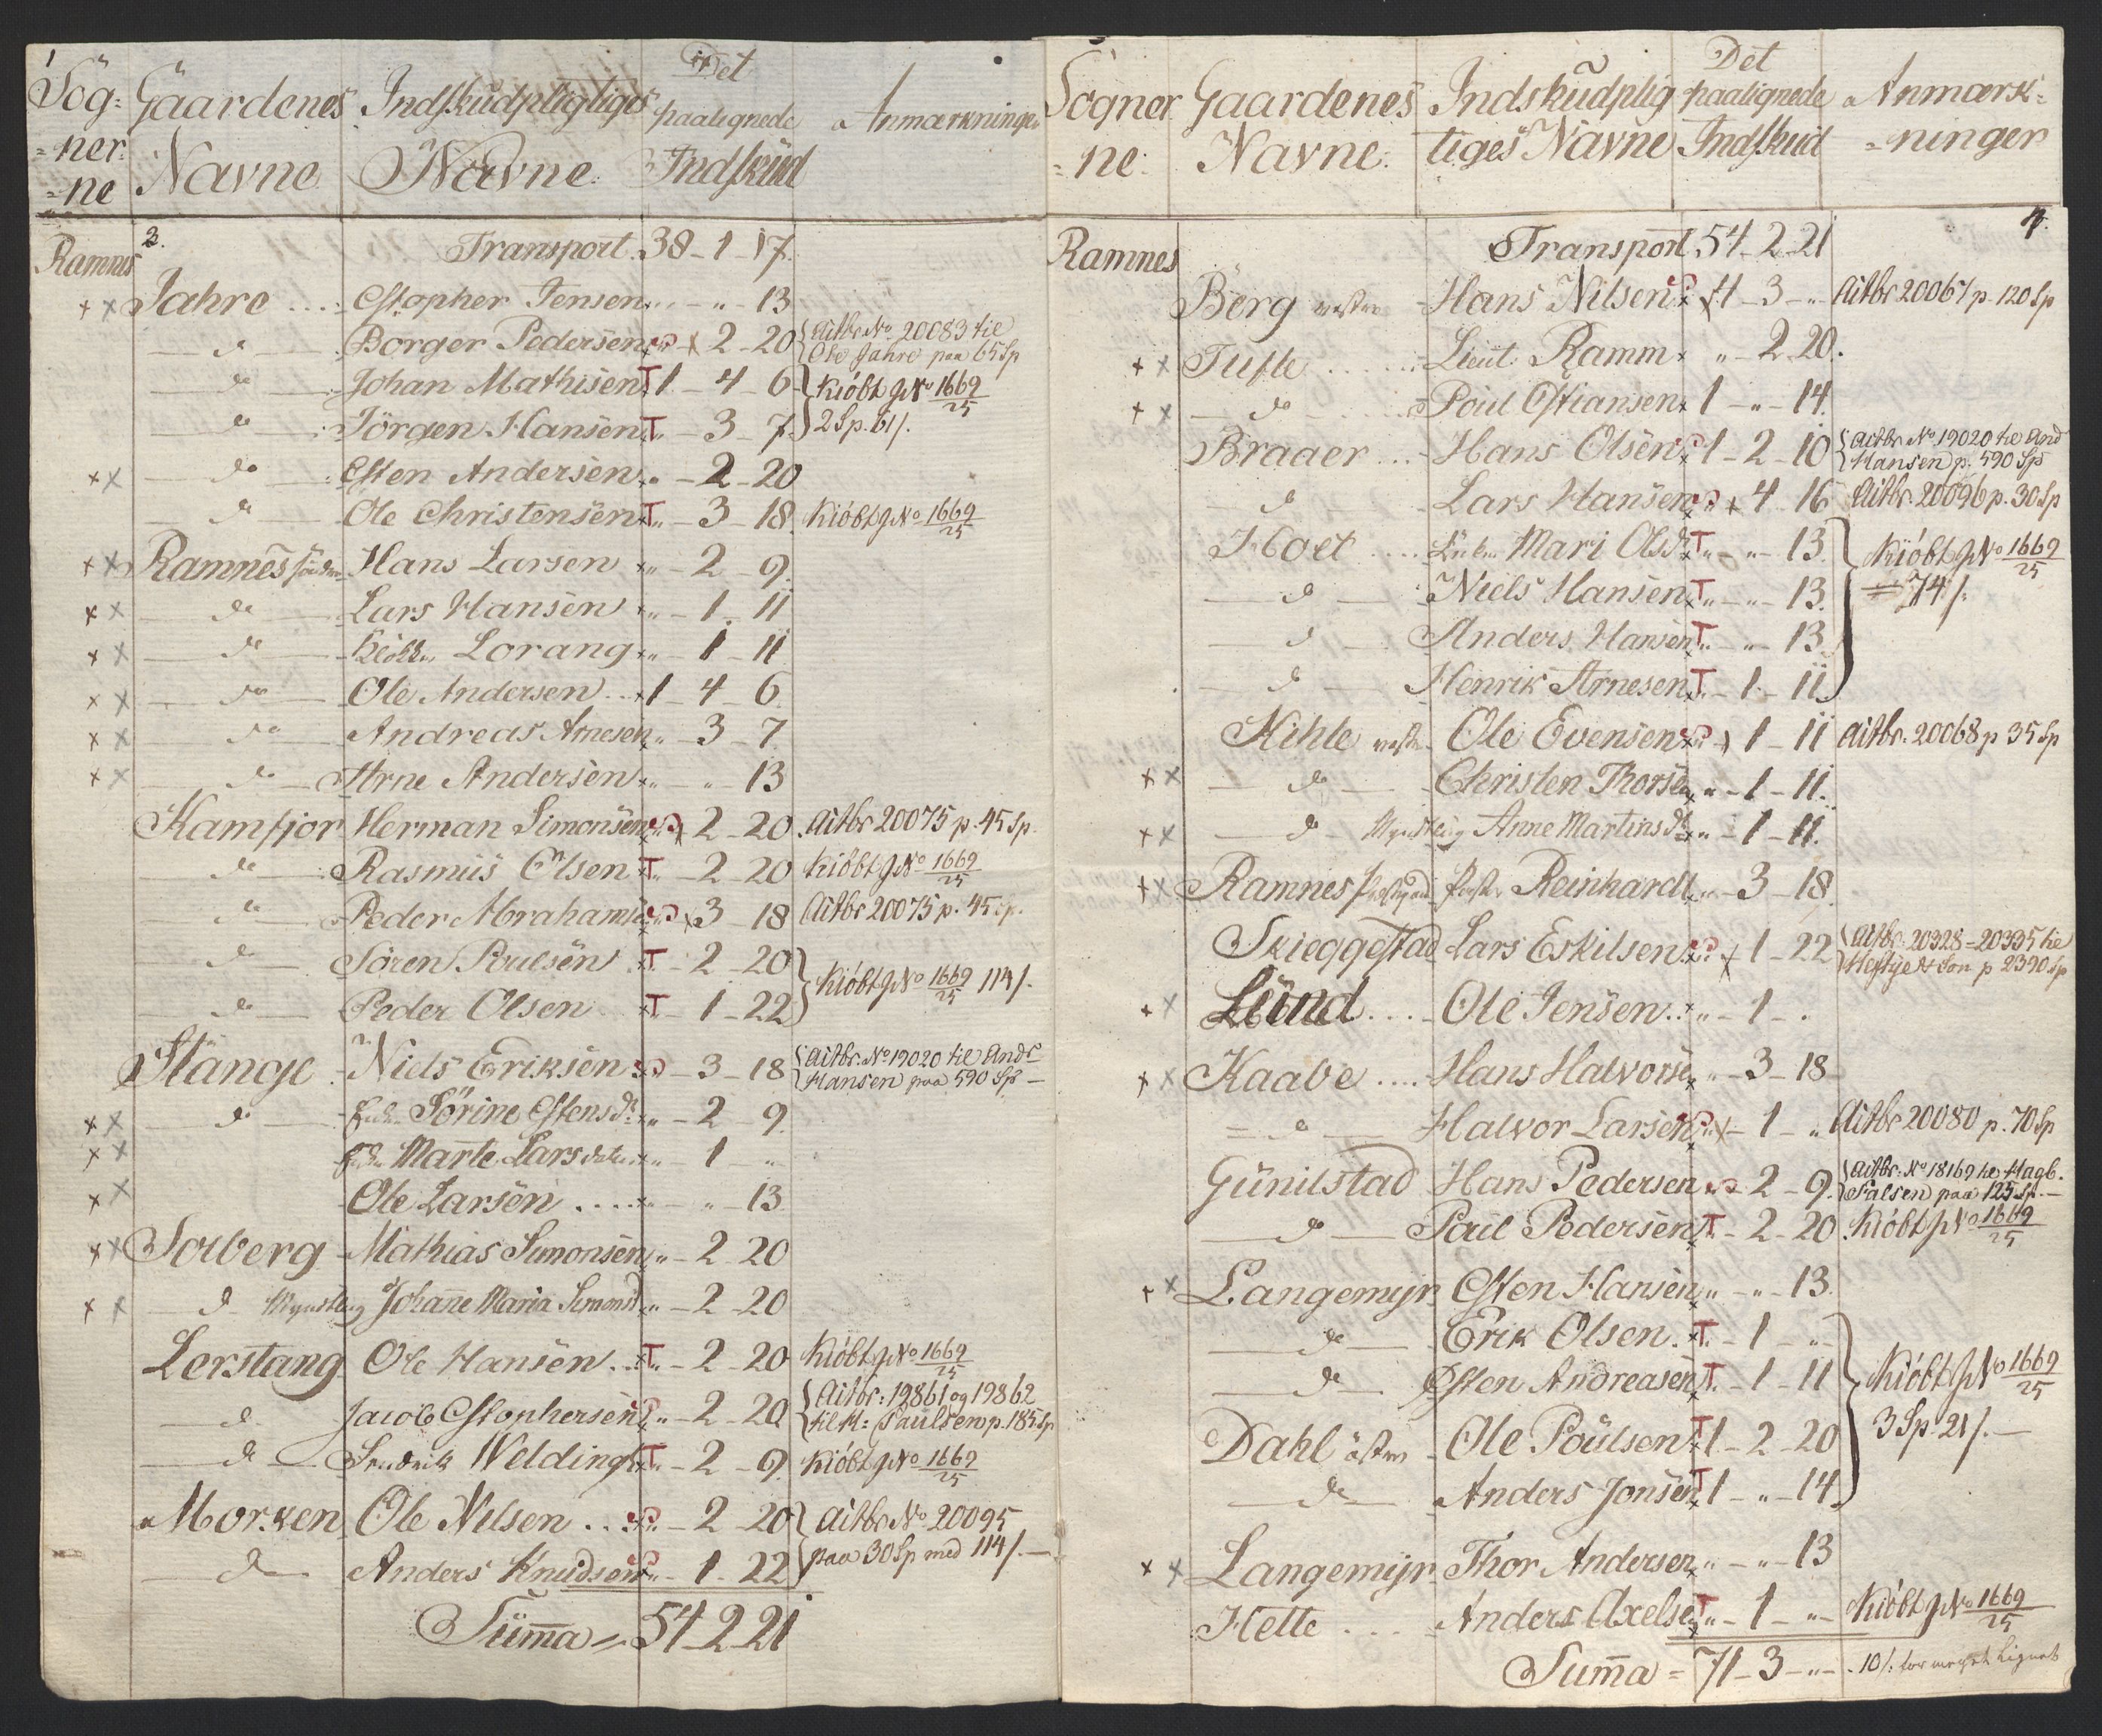 Sög: Gaardenes Indskudpligtiges Det paalignede Anmærkninger
=ner:
=ne Navne Navne: Indskud
Ramnes 3. Transport. 38 - 1 - 17.
++ Jahre .... Cstopher Jensen „ - „ - 13
do Borger Pedersen „ + 2 - 20 {Aitbr No 20083 til
{Ole Jahre paa 65 Sp
do Johan Mathisen T 1 - 4 - 6 } Kiöbt g No 1669/25
do Jörgen Hansen T „ - 3 - 7 } 2 Sp. 61/.
++ do Esten Andersen „ - 2 - 20
do Ole Christensen T „ - 3 - 18 Kiöbt g No 1669/25
++ Ramnes söndre Hans Larsen „ - 2 - 9.
++ do Lars Hansen „ - 1 - 11
++ do Lorang „ - 1 - 11
++ do Ole Andersen .. 1 - 4 - 6.
++ do Andreas Arnesen „ - 3 - 7
++ do Arne Andersen „ - „ - 13
Kamfjor Herman Simonsen „ + 2 - 20. Aitbr 20075 p. 45 Sp.
do Rasmus Olsen T „ - 2 - 20 Kiöbt g No 1669/25
do Peder Abrahamse „ + 3 - 18 Aitbr 20075 p. 45 Sp.
do Sören Poulsen T - 2 - 20 }
do Peder Olsen T - 1 - 22 } Kiöbt g No 1669/25 114/.
Stange Niels Eriksen „ - 3 - 18 {Aitbr. No 19020 til Andr
{Hansen paa 590 Sp -
++ do Sörine Estensdr „ - 2 - 9
++ Marte Larsdatter „ - 1 - „
++ Ole Larsen .... „ - „ - 13
++ Solberg Mathias Simonsen „ - 2 - 20
++ do Johanne Maria Simonsd „ - 2 - 20
Lerstang Ole Hansen. .. T „ - 2 - 20 Kiöbt g No 1669/25
do Jacob Cstophersen „ - 2 - 20 {Aitbr: 19861 og 19862
{til H: Paulsen p. 185 Sp
do Fredrik Welding T „ - 2 - 9. Kiöbt g No 1669/25
Morken Ole Nilsen .. „ - 2 - 20 } Aitbr No 20095
do Anders Knudsen „ - 1 - 22 } paa 30 Sp med 114/. -
Summa = 54 - 2 - 21
Sogner Gaardenes Indskudplig Det paalignede Anmærk=
=ne: Navne: tiges Navne Indskud =ninger
Ramnes Transport 54 - 2 - 21 4.
Berg vestre Hans Nilsen + 4 - 3 - „ Aitbr 20067 p. 120 Sp
++ Tufte ...... Lieut: Ramm „ - 2 - 20.
++ do Poul Cstiansen 1 - „ - 14.
Braaer ... Hans Olsen 1 - 2 - 10 {Aitbr No 19020 til And
{Hansen p. 590 Sp
do Lars Hansen „ + 4 - 16 Aitbr. 20096 p. 30 Sp
Hoet .... Enke Mari Olsd T „ - „ - 13. } Kiöbt g No 1669/25
do Niels Hansen T „ - „ - 13. } = 74/.
do Anders Hansen T „ - „ - 13. }
do Henrik Arnesen T „ - 1 - 11 }
Kihle vestre Ole Evensen „ + 1 - 11 Aitbr. 20068 p 35 Sp
++ do Christen Thorse „ - 1 - 11.
++ do Anne Martinsdr „ - 1 - 11.
++ Ramnes Præstegaard Pastor Reinhardt „ - 3 - 18.
Skieggestad Lars Eskilsen „ + 1 - 22 {Aitbr. 20328 = 20335 til
{Heftye & Son p 2390 Sp
++ Lund .... Ole Jensen. „ - 1 - .
++ Kaabe .... Hans Halvorse „ - 3 - 18
do Halvor Larsen „ + - 1 - „ Aitbr 20080 p. 70 Sp
Gunilstad Hans Pedersen „ - 2 - 9. {Aitbr. No 18169 til Hagb.
{Falsen paa 125 Sp. -
do Poul Pedersen T - 2 - 20 Kiöbt g No 1669/25
++ Langemyr Esten Hansen „ - „ - 13.
do Erik Olsen. T. - 1 - „ }
do Østen Andreasen T. - 1 - 11 } Kiöbt g No 1669/25
Dahl östre Ole Poulsen T 1 - 2 - 20 } 3 Sp. 21/. -
do Anders Jonsen T 1 - „ - 14 }
++ Langemyr Thor Andersen „ - „ - 13
Hette ... Anders Axelse T „ - 1 - „ - Kiöbt g No 1669/25
Summa = 71 - 3 - „ - 10/. for meget Lignet